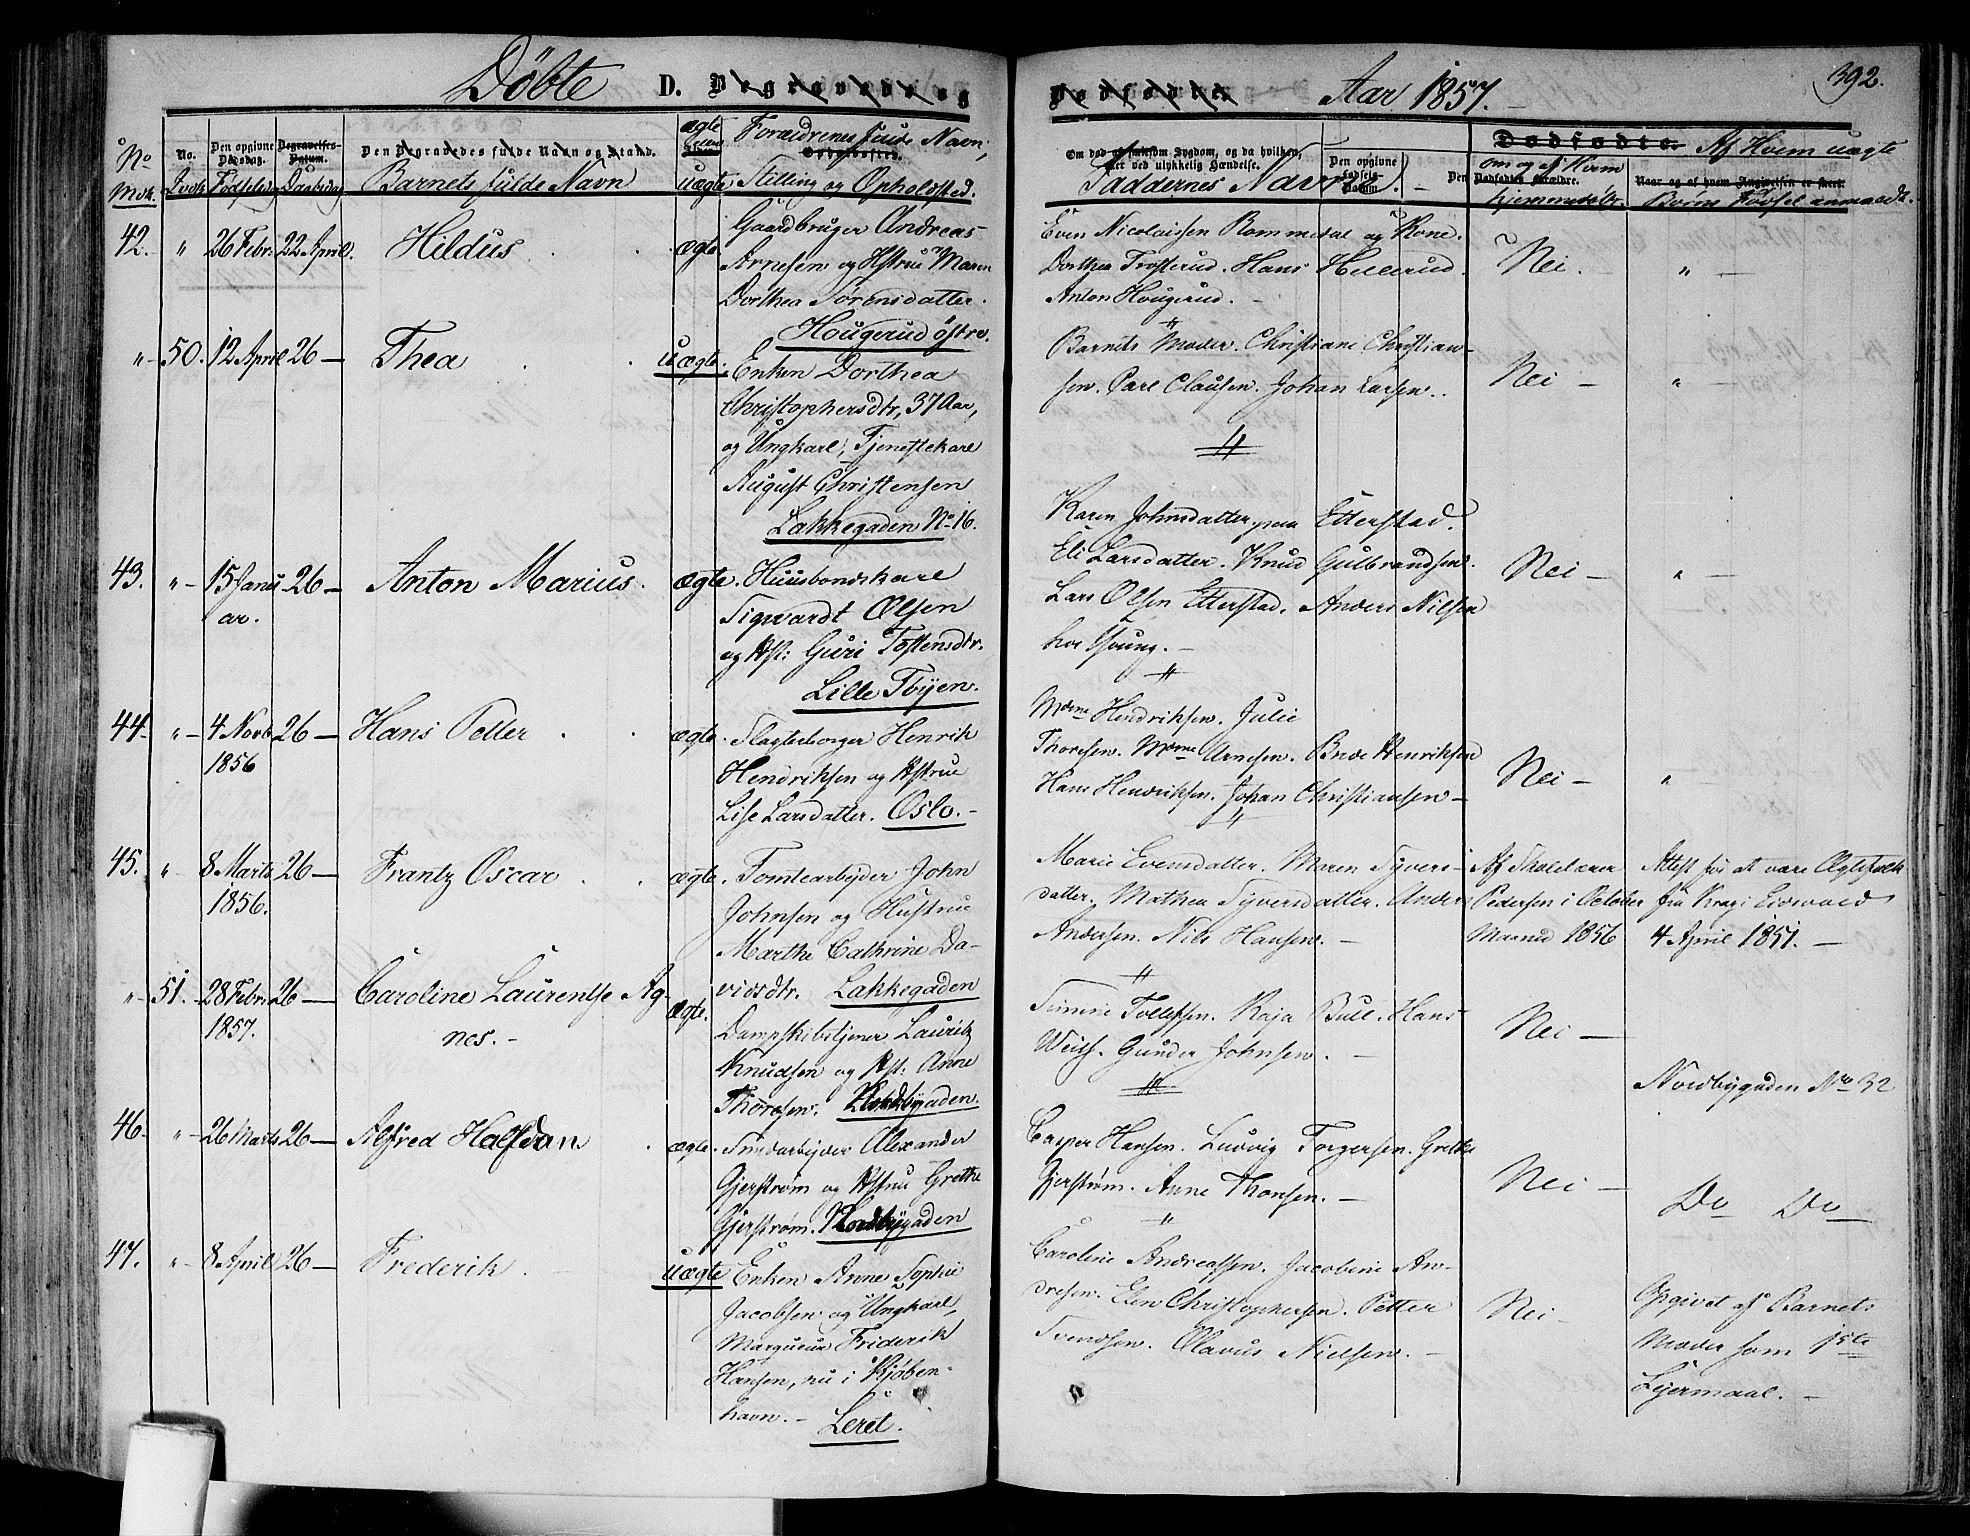 Døbte D. Begravede og
Dødfødte. Aar 1857. 392.
No. Mdk. No. Qvdk. Den opgivne Fødselsdag. Begravelses-Datum. Daabsdag
Den Begravedes fulde Navn og Stand.
Barnets fulde Navn
ægte eller uægte
Forældrenes fulde Navn,
Stilling og Opholdsted.
Faddernes Navn.
Dødfødte.
om og af Hvem hjemmedøbt.
Af Hvem uægte Børns Fødsel anmeldt.
42. " 26 Febr. 22 April. Hildus ægte.
Gaardbruger Andreas
Arnesen og Hstrue Maren
Dorthea Sørensdatter.
Hougerud østre.
Even Nicolaisen Rommedal og Kone.
Dorthea Trosterud. Hans Hellerud.
Anton Hougerud.
Nei. " —
" 50. 12 April 26 — Thea uægte.
Enken Dorthea
Christophersdtr, 37 Aar,
og Ungkarl, Tjenestekarl
August Christensen
Lakkegaden No 16.
Barnets Moder. Christiane Christian-
sen. Carl Clausen. Johan Larsen.
Nei — " —
43. " 15 Janu-
ar. 26 — Anton Marius. ægte.
Huusbondskarl
Sigvardt Olsen
og Hst: Guri Tostensdtr.
Lille Tøyen.
Karen Johnsdatter Etterstad.
Eli Larsdatter. Knud Gulbrandsen.
Lars Olsen Etterstad. Anders Nilsen
hos Young.
Nei — " —
44. " 4 Novb
1856 26 — Hans Petter ægte.
Slagterborger Henrik
Hendriksen og Hstrue
Lise Larsdatter. Oslo. —
Mdme Hendriksen. Julie
Thoresen. Mdme Arnesen. Brede Henriksen
Hans Hendriksen. Johan Christiansen —
Nei — " —
45. " 8 Marts
1856. 26 — Frantz Oscar ægte.
Tomtearbejder John
Johnsen og Hustrue
Marthe Cathrine Da-
vidsdtr. Lakkegaden
Marie Evensdatter. Maren Syvers-
datter. Mathea Syversdatter. Anders
Andersen. Nils Hansen. —
Af Skolelærer
Pedersen i October
Maaned 1856
Attest for at være Ægtefolk
fra Krag i Eidsvold
4 April 1851. —
" 51. 28 Febr.
1857. 26 — Caroline Laurentse Ag-
nes. — ægte.
Dampskibstjener Lauritz
Knudsen og Hst: Anne
Thoresen. Nordbygaden.
Simine Tollefsen. Kaja Bull. Hans
Weith. Gunder Johnsen. —
Nei —
Nordbygaden No 32
46. " 26 Marts 26 — Alfred Halfdan ægte.
Smedarbejder Alexander
Gjerstrøm og Hstru Grethe
Gjerstrøm. Nordbygaden
Casper Hansen. Ludvig Torgersen. Grethe
Gjerstrøm. Anne Thorsen. —
Nei —
Do Do —
47. " 8 April 26 — Frederik. uægte
Enken Anne Sophie
Jacobsen og Ungkarl,
Marqueur Friderik
Hansen, nu i Kjøben-
havn. — Leret.
Caroline Andreassen. Jacobine An-
dresen. Elen Christophersen. Petter
Svendsen. Olavus Nielsen. —
Nei —
Opgivet af Barnets
Moder som 1ste
Lejermaal. —